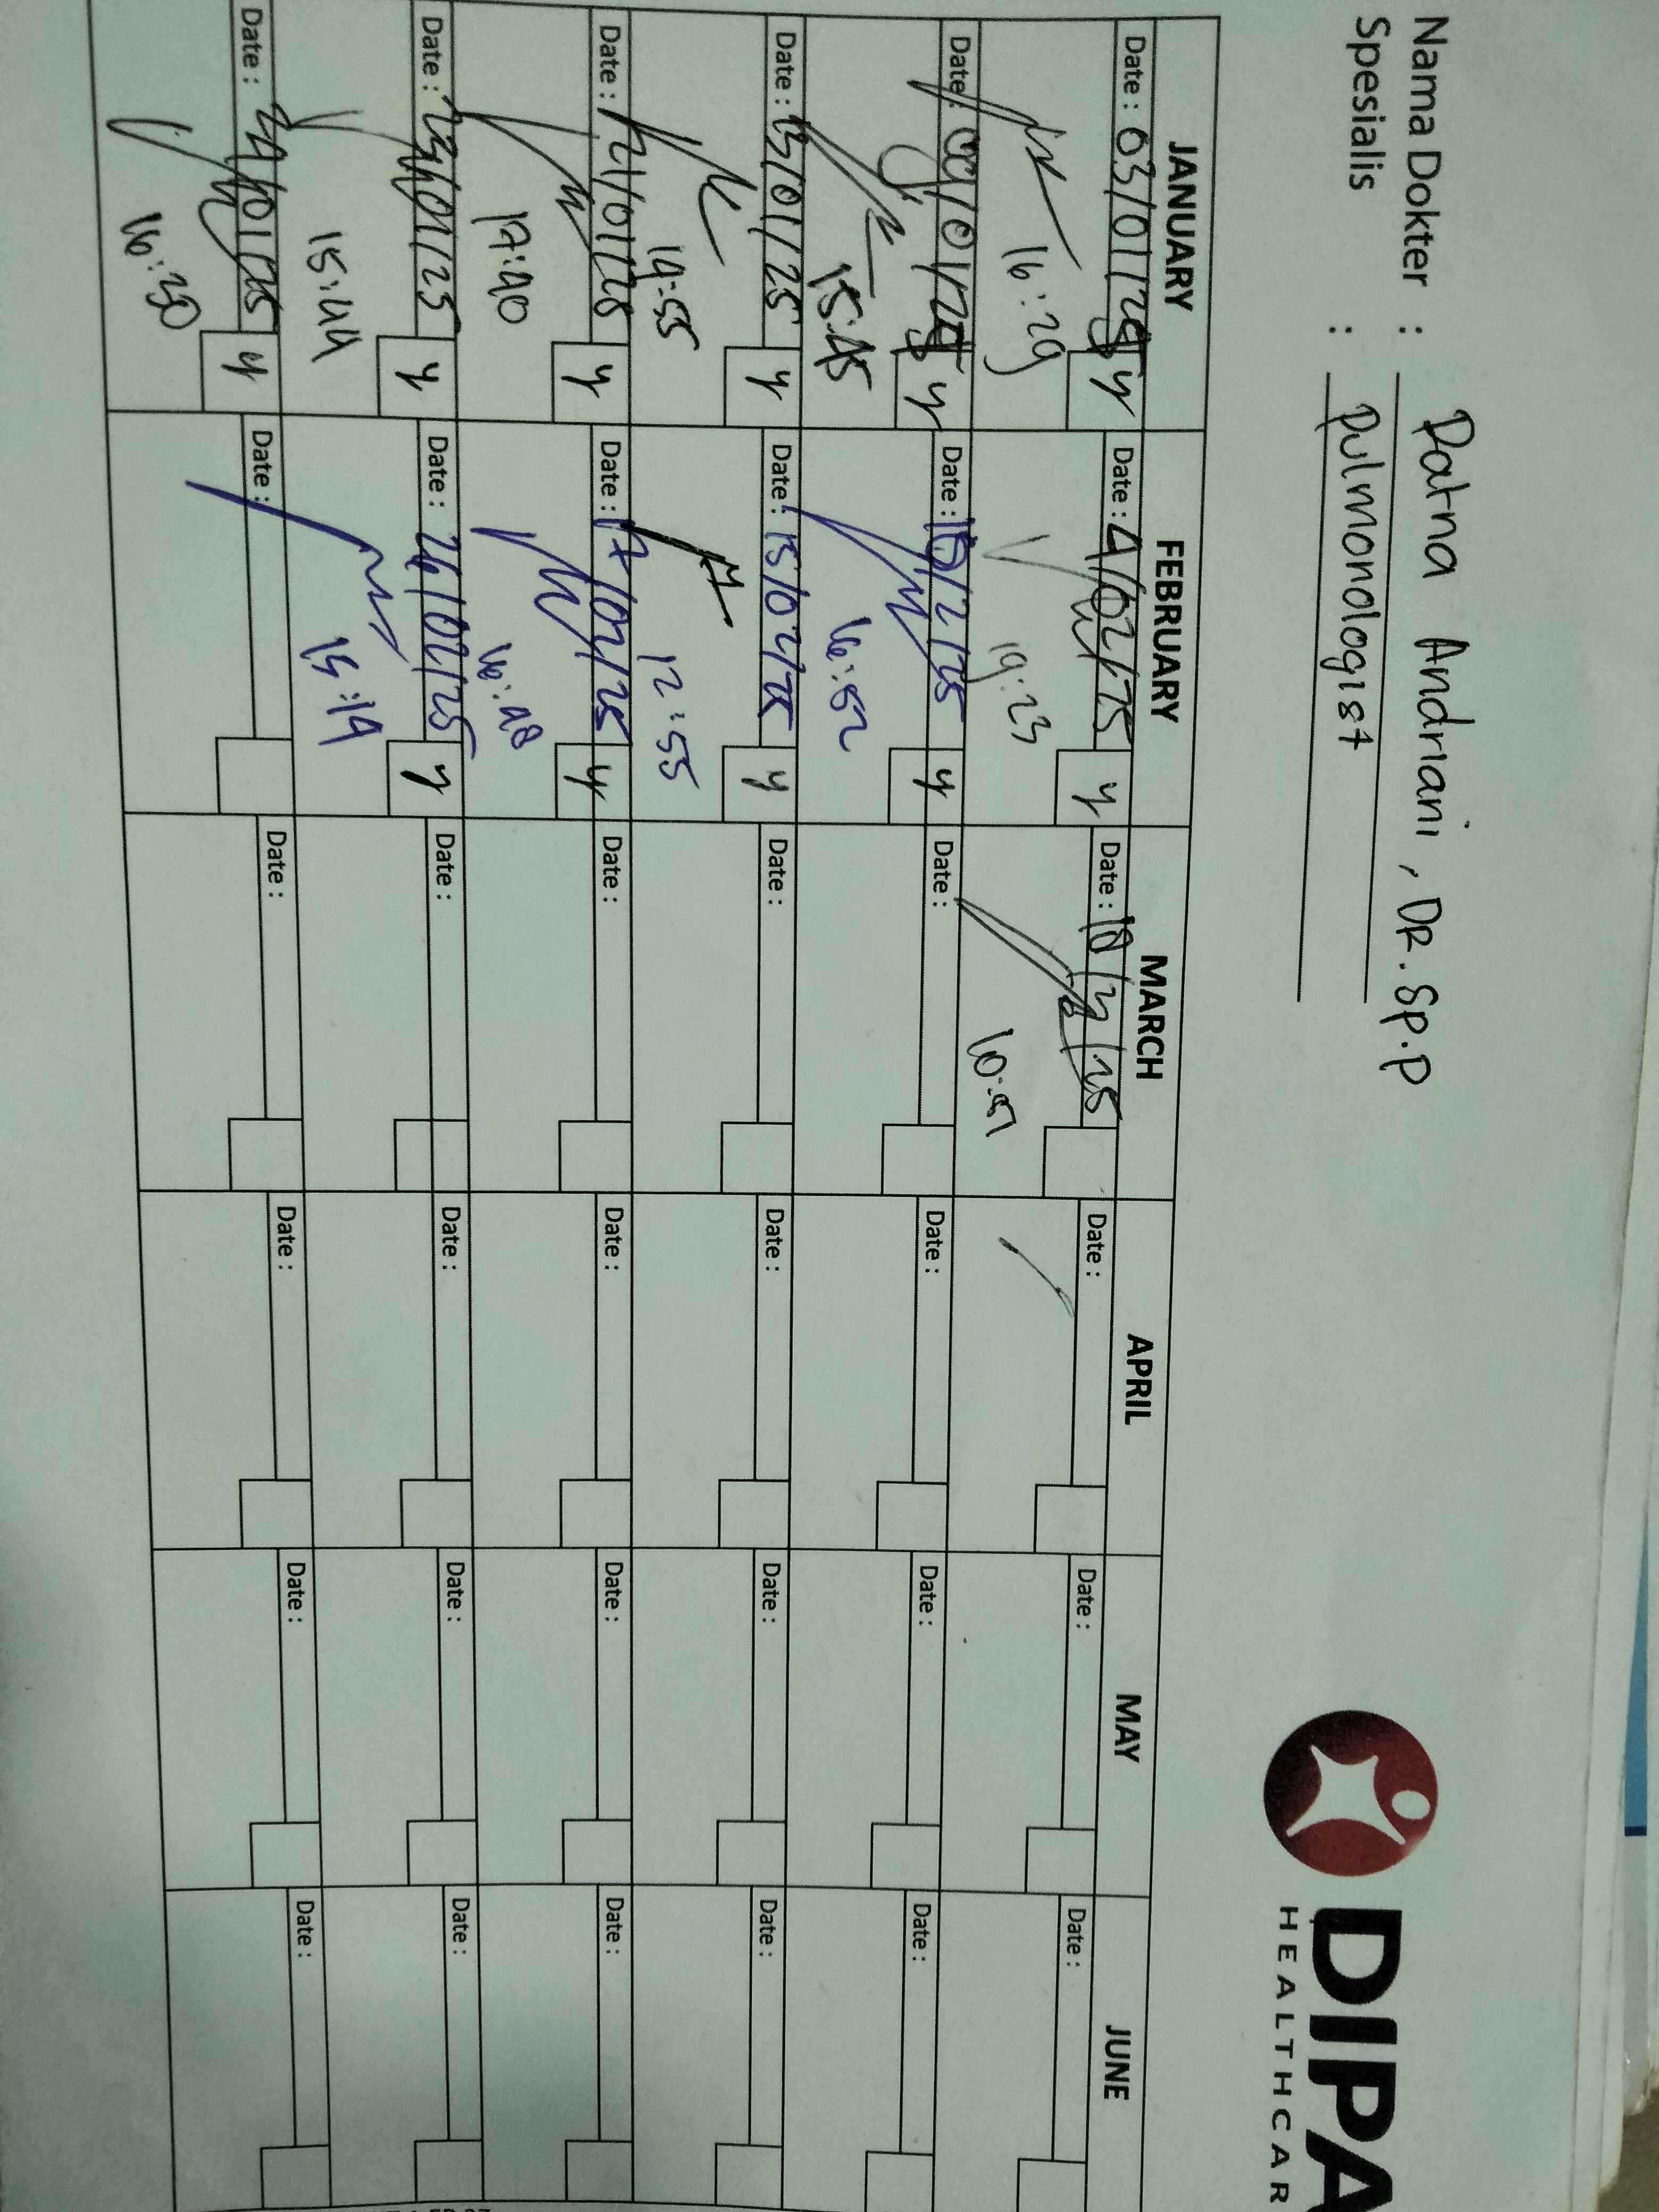 Nama Dokter : Ratna Andriani, DR. Sp.P
Spesialis : pulmonologist
DIPA
HEALTHCAR
JANUARY FEBRUARY MARCH APRIL MAY JUNE
Date : 03/01/25 y Date : 4/02/25 y Date : 10/3/25 Date : Date : Date :
16:29 19:23 10:51
Date : 09/01/25 y Date : 10/2/25 y Date : Date : Date : Date :
15:45 16:52
Date : 13/01/25 y Date : 15/02/25 y Date : Date : Date : Date :
14:55 12:55
Date : 21/01/25 y Date : 17/02/25 y Date : Date : Date : Date :
17:40 16:48
Date : 23/01/25 y Date : 26/02/25 y Date : Date : Date : Date :
15:44 15:19
Date : /01/25 y Date : Date : Date : Date : Date :
16:30